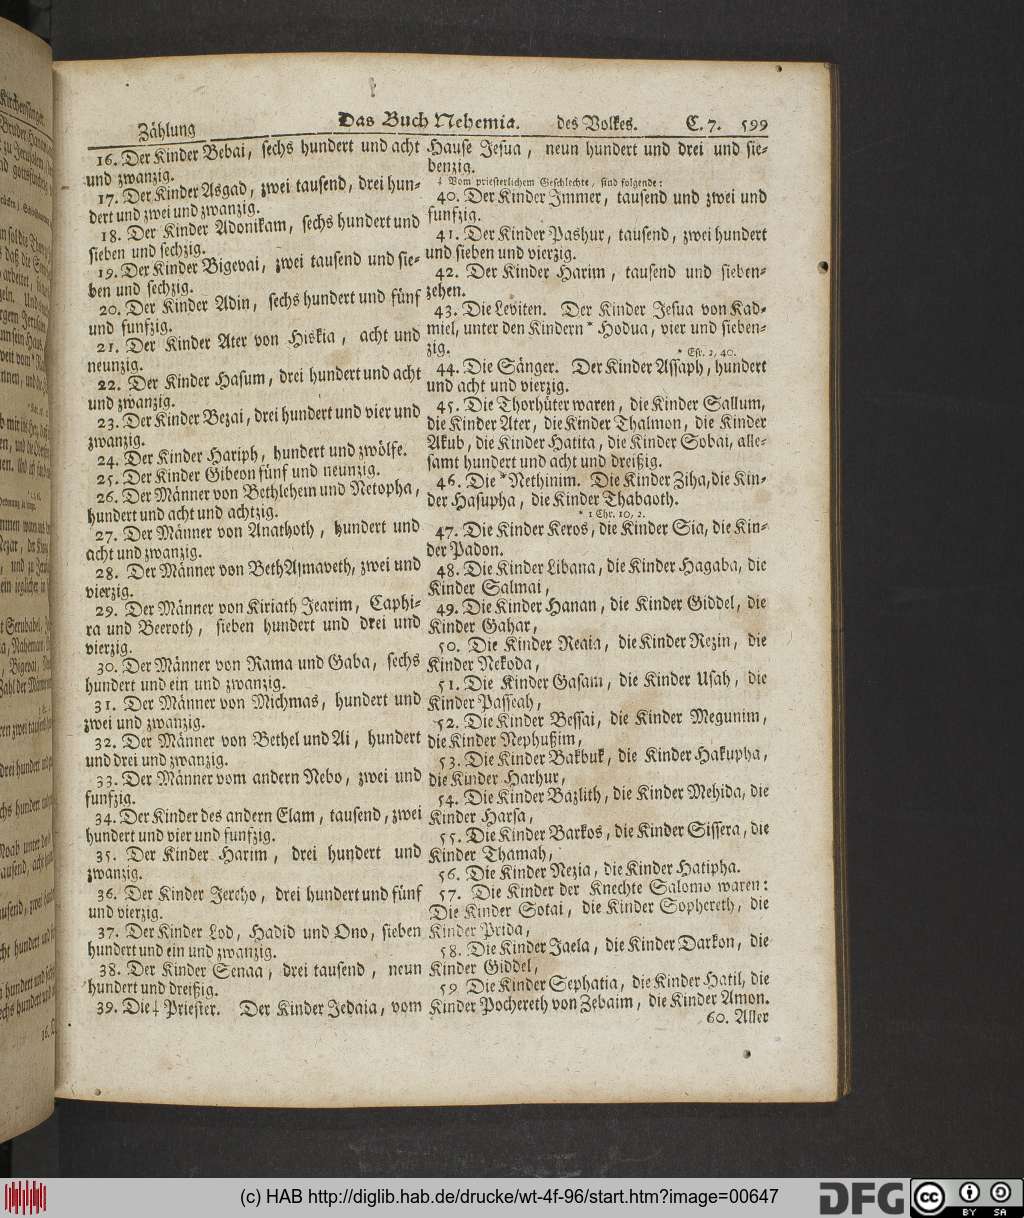 Zählung Das Buch Nehemia. des Volkes. C. 7. 599
16. Der Kinder Bebai, sechs hundert und acht
und zwanzig.
17. Der Kinder Asgad, zwei tausend, drei hun-
dert und zwei und zwanzig.
18. Der Kinder Adonikam, sechs hundert und
sieben und sechzig.
19. Der Kinder Bigevai, zwei tausend und sie-
ben und sechzig.
20. Der Kinder Adin, sechs hundert und fünf
und funfzig.
21. Der Kinder Ater von Hiskia, acht und
neunzig.
22. Der Kinder Hasum, drei hundert und acht
und zwanzig.
23. Der Kinder Bezai, drei hundert und vier und
zwanzig.
24. Der Kinder Hariph, hundert und zwölfe.
25. Der Kinder Gibeon fünf und neunzig.
26. Der Männer von Bethlehem und Netopha,
hundert und acht und achtzig.
27. Der Männer von Anathoth, hundert und
acht und zwanzig.
28. Der Männer von BethAsmaveth, zwei und
vierzig.
29. Der Männer von Kiriath Jearim, Caphi-
ra und Beeroth, sieben hundert und drei und
vierzig.
30. Der Männer von Rama und Gaba, sechs
hundert und ein und zwanzig.
31. Der Männer von Michmas, hundert und
zwei und zwanzig.
32. Der Männer von Bethel und Ai, hundert
und drei und zwanzig.
33. Der Männer vom andern Nebo, zwei und
funfzig.
34. Der Kinder des andern Elam, tausend, zwei
hundert und vier und funfzig.
35. Der Kinder Harim, drei hundert und
zwanzig.
36. Der Kinder Jereho, drei hundert und fünf
und vierzig.
37. Der Kinder Lod, Hadid und Ono, sieben
hundert und ein und zwanzig.
38. Der Kinder Senaa, drei tausend, neun
hundert und dreißig.
39. Die ⸸ Priester. Der Kinder Jedaia, vom
Hause Jesua, neun hundert und drei und sie-
benzig.
⸸ Vom priesterlichem Geschlechte, sind folgende:
40. Der Kinder Immer, tausend und zwei und
funfzig.
41. Der Kinder Pashur, tausend, zwei hundert
und sieben und vierzig.
42. Der Kinder Harim, tausend und sieben-
zehen.
43. Die Leviten. Der Kinder Jesua von Kad-
miel, unter den Kindern * Hodua, vier und sieben-
zig.
* Esr. 2, 40.
44. Die Sänger. Der Kinder Assaph, hundert
und acht und vierzig.
45. Die Thorhüter waren, die Kinder Sallum,
die Kinder Ater, die Kinder Thalmon, die Kinder
Akub, die Kinder Hatita, die Kinder Sobai, alle-
samt hundert und acht und dreißig.
46. Die * Nethinim. Die Kinder Ziha, die Kin-
der Hasupha, die Kinder Thabaoth.
* 1 Chr. 10, 2.
47. Die Kinder Keros, die Kinder Sia, die Kin-
der Padon.
48. Die Kinder Libana, die Kinder Hagaba, die
Kinder Salmai,
49. Die Kinder Hanan, die Kinder Giddel, die
Kinder Gahar,
50. Die Kinder Reaia, die Kinder Rezin, die
Kinder Nekoda,
51. Die Kinder Gasam, die Kinder Usah, die
Kinder Passeah,
52. Die Kinder Bessai, die Kinder Megunim,
die Kinder Nephußim,
53. Die Kinder Bakbuk, die Kinder Hakupha,
die Kinder Harhur,
54. Die Kinder Bazlith, die Kinder Mehida, die
Kinder Harsa,
55. Die Kinder Barkos, die Kinder Sissera, die
Kinder Thamah,
56. Die Kinder Nezia, die Kinder Hatipha.
57. Die Kinder der Knechte Salomo waren:
Die Kinder Sotai, die Kinder Sophereth, die
Kinder Prida,
58. Die Kinder Jaela, die Kinder Darkon, die
Kinder Giddel,
59 Die Kinder Sephatia, die Kinder Hatil, die
Kinder Pochereth von Zebaim, die Kinder Amon.
60. Aller
(c) HAB http://diglib.hab.de/drucke/wt-4f-96/start.htm?image=00647
DFG
BY SA